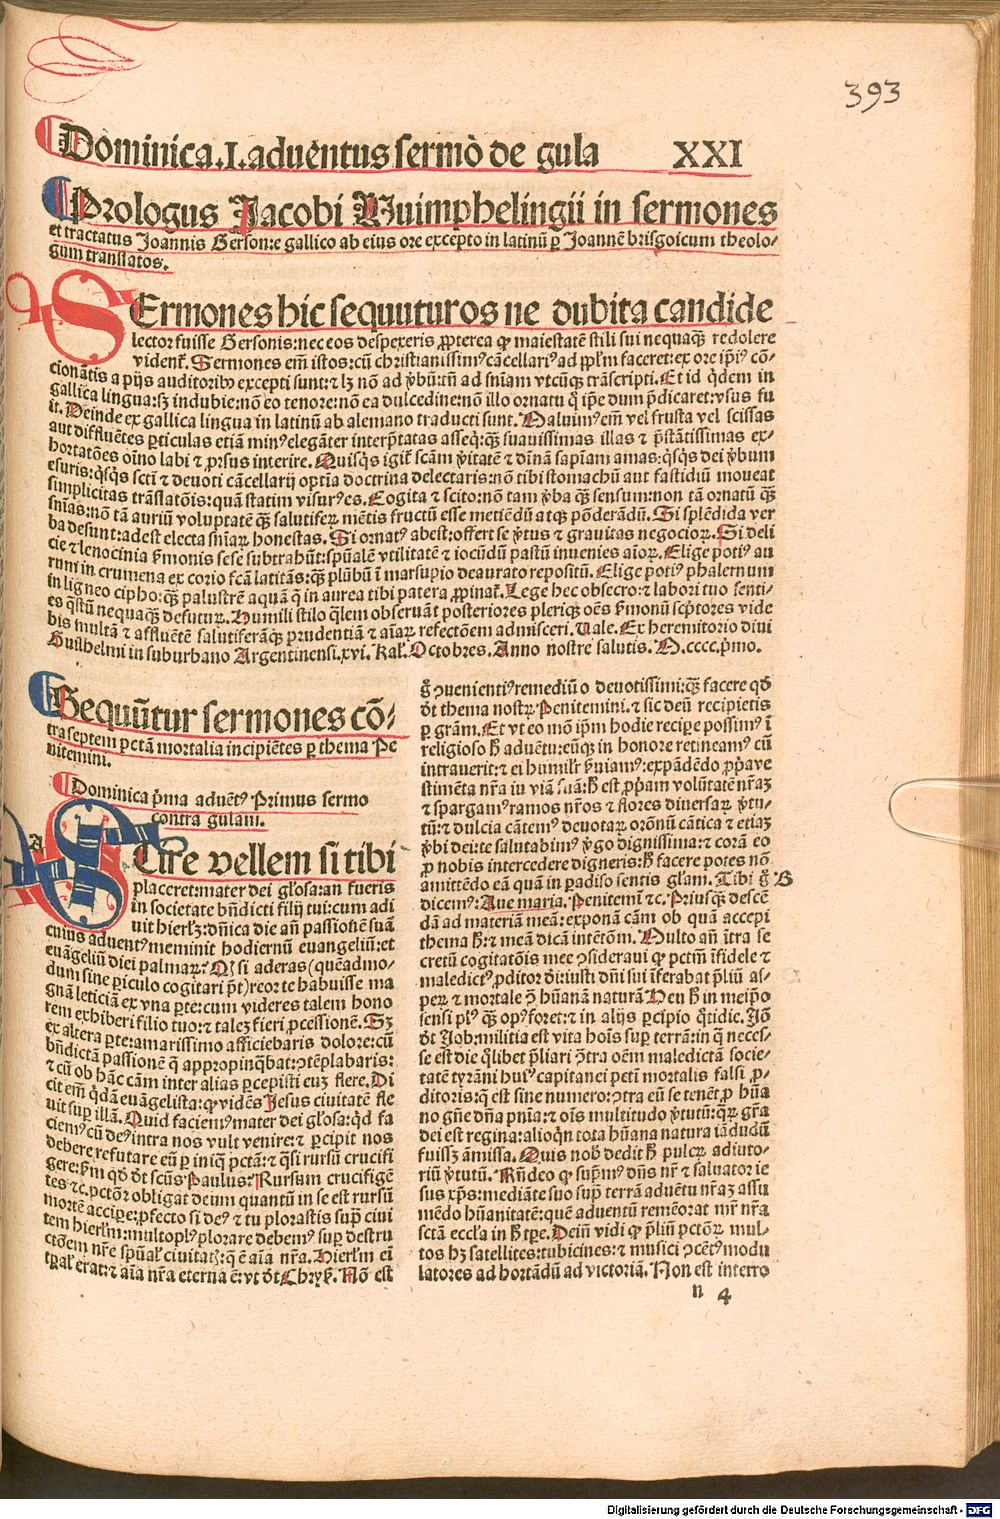 393
Dominica.I.aduētus sermō de gula XXI
Prologus Jacobi Wuimphelingii in sermones
et tractatus Joannis Gerson:e gallico ab eius ore excepto in latinū ꝑ Joannē brisgoicum theolo-
gum translatos.
SErmones hic sequuturos ne dubita candide
lector fuisse Gersonis:nec eos despexeris ꝓpterea ꝙ maiestatē stili sui nequaꝗ̄ redolere
vident̄. Sermones em̄ istos:cū christianissimꝰ cācellariꝰ ad ppl̄m faceret:ex ore ip̄iꝰ cō-
cionātis a pijs auditoribꝰ excepti sunt:⁊ lꝫ nō ad v̄bū:tn̄ ad sn̄iam vtcūqꝫ trāscripti. Et id q̇dem in
gallica lingua:sꝫ indubie:nō eo tenore:nō ea dulcedine:nō illo ornatu q̇ ip̄e dum p̄dicaret:vsus fu
it. Deinde ex gallica lingua in latinū ab alemano traducti sunt. Maluimꝰ em̄ vel frusta vel scissas
aut diffluētes ꝑticulas etiā minꝰ elegāter interp̄tatas asseq̇:ꝗ̄ suauissimas illas ⁊ p̄stātissimas ex-
hortatōes oīno labi ⁊ ꝓrsus interire. Quisq̇s igit̄ scām v̄itatē ⁊ diīnā sapīam amas:q̇sq̇s dei v̄bum
esuris:q̇sq̇s scti ⁊ deuoti cācellarij optīa doctrina delectaris:nō tibi stomachū aut fastidiū moueat
simplicitas trāslatōis:quā statim visurꝰes. Cogita ⁊ scito:nō tam v̄ba ꝗ̄ sensum:non tā ornatū ꝗ̄
sn̄ias:nō tā auriū voluptatē ꝗ̄ salutiferꝝ mētis fructū esse metiēdū atqꝫ pōderādū. Si splēdida ver
ba desunt:adest electa sn̄iaꝝ honestas. Si ornatꝰ abest:offert se v̄tus ⁊ grauitas negocioꝝ. Si deli
cie ⁊ lenocinia s̄monis sese subtrahūt:sp̄ualē vtilitatē ⁊ iocūdū pastū inuenies aīoꝝ. Elige potiꝰ au
rum in crumena ex corio fcā latitās:ꝗ̄ plūbū ī marsupio deaurato repositū. Elige potiꝰ phalernum
in ligneo cipho:ꝗ̄ palustrē aquā q̇ in aurea tibi patera ꝓpinat̄. Lege hec obsecro:⁊ labori tuo senti-
es q̄stū nequaꝗ̄ defuturꝝ. Humili stilo q̄lem obseruāt posteriores pleriqꝫ oēs s̄monū scp̄tores vide
bis multā ⁊ affluētē salutiferāqꝫ prudentiā ⁊ aīaꝝ refectōem admisceri. Vale. Ex heremitorio diui
Guilhelmi in suburbano Argentinensi.xvi. Kal̄. Octobres. Anno nostre salutis. M.cccc.p̄mo.
Sequūtur sermones cō-
tra septem pctā mortalia incipiētes ꝑ thema Pe
nitemini.
Dominica p̄ma aduētꝰ Primus sermo
contra gulam.
A
SCire vellem si tibi
placeret:mater dei gl̄osa:an fueris
in societate bn̄dicti filij tui:cum adi
uit hierl̄ꝫ:dn̄ica die an̄ passionē suā
cuius aduentꝰ meminit hodiernū euangeliū:et
euāgeliū diei palmaꝝ? Qꝫ si aderas (quēadmo-
dum sine ꝑiculo cogitari pōt)reor te habuisse ma
gnā leticiā ex vna ꝑte:cum videres talem hono
rem exhiberi filio tuo:⁊ taleꝫ fieri ꝓcessionē. Sꝫ
ex altera ꝑte:amarissimo afficiebaris dolore:cū
bn̄dictā passionē q̄ appropinq̄bat:ꝯtēplabaris:
⁊ cū ob hāc cām inter alias ꝑcepisti euꝫ flere. Di
cit em̄ q̇dā euāgelista:ꝙ vidēs Jesus ciuitatē fle
uit suꝑ illā. Quid faciemꝰ mater dei gl̄osa:q̇d fa
ciemꝰ cū deꝰ intra nos vult venire:⁊ ꝑcipit nos
debere refutare eū ꝑ iniq̄ pctā:⁊ q̄si rursū crucifi
gere:s̄m qd̄ d̄t scūs Paulus? Rursum crucifigē
tes ⁊c.pctōꝝ obligat deum quantū in se est rursū
mortē accipe:ꝓfecto si deꝰ ⁊ tu plorastis suꝑ ciui
tem hierl̄m:multoplꝰ plorare debemꝰ suꝑ destru
ctōem nr̄e sp̄ual̄ ciuitatꝭ:q̄ ē aīa nr̄a. Hierl̄m eī
tp̄al̄ erat:⁊ aīa nr̄a eterna ē:vt d̄t Chryẜ. Nō est
g̊ ꝯuenientiꝰ remediū o deuotissimi:ꝗ̄ facere qd̄
d̄t thema nostrꝝ Penitemini.⁊ sic deū recipietis
ꝑ gr̄am. Et vt eo mō ip̄m hodie recipe possimꝰ ī
religioso h̄ aduētu:eūqꝫ in honore retineamꝰ cū
intrauerit:⁊ ei humil̄r s̄uiamꝰ:expādēdo ꝓp̄a ve
stimēta nr̄a in viā suā:h̄ est ꝓp̄am volūtatē nr̄aꝫ
⁊ spargamꝰ ramos nr̄os ⁊ flores diuersaꝝ v̄tu-
tū:⁊ dulcia cātemꝰ deuotaꝝ orōnū cātica ⁊ etiaꝫ
v̄bi dei:te salutabimꝰ v̄go dignissima:⁊ corā eo
ꝓ nobis intercedere digneris:h̄ facere potes nō
amittēdo eā quā in ꝑadiso sentis gl̄am. Tibi g̊ B
dicemꝰ: Aue maria. Penitemī ⁊c. Priusꝗ̄ descē
dā ad materiā meā:exponā cām ob quā accepi
thema h̄:⁊ meā dicā intētōm. Multo an̄ ītra se
cretū cogitatōis mee ꝯsideraui ꝙ pctm̄ īfidele ⁊
maledictꝰ ꝓditor dei:iusti dn̄i sui īferabat p̄liū as-
peꝝ ⁊ mortale ꝯ̄ hūanā naturā Heu h̄ in meip̄o
sensi plꝰ ꝗ̄ opꝰ foret:⁊ in alijs ꝑcipio q̇tidie. Jō
d̄t Job:militia est vita hoīs suꝑ terrā:in q̄ neces-
se est die q̇libet p̄liari ꝯtra oēm maledictā socie-
tatē tyrāni huiꝰ capitanei pcti mortalis falsi ꝓ-
ditoris:q̇ est sine numero:ꝯtra eū se tenēt ꝓ hūa
no gn̄e dn̄a pn̄ia:⁊ oīs multitudo v̄tutū:q̄ꝝ gr̄a
dei est regina:alioq̇n tota hūana natura iādudū
fuissꝫ āmissa. Quis nob̄ dedit h̄ pulcꝝ adiuto-
riū v̄tutū. Rn̄deo ꝙ sup̄mꝰ dn̄s nr̄ ⁊ saluator ie
sus xp̄s:mediāte suo suꝑ terrā aduētu nr̄aꝫ assu
mēdo hūanitatē:quē aduentū remēorat mr̄ nr̄a
sctā eccl̄a in h̄ tꝑe. Deīn̄ vidi ꝙ p̄liū pctōꝝ mul-
tos hꝫ satellites:tubicines:⁊ musici ꝯcētꝰ modu
latores ad hortādū ad victoriā. Non est interro
n 4
Digitalisierung gefördert durch die Deutsche Forschungsgemeinschaft - DFG